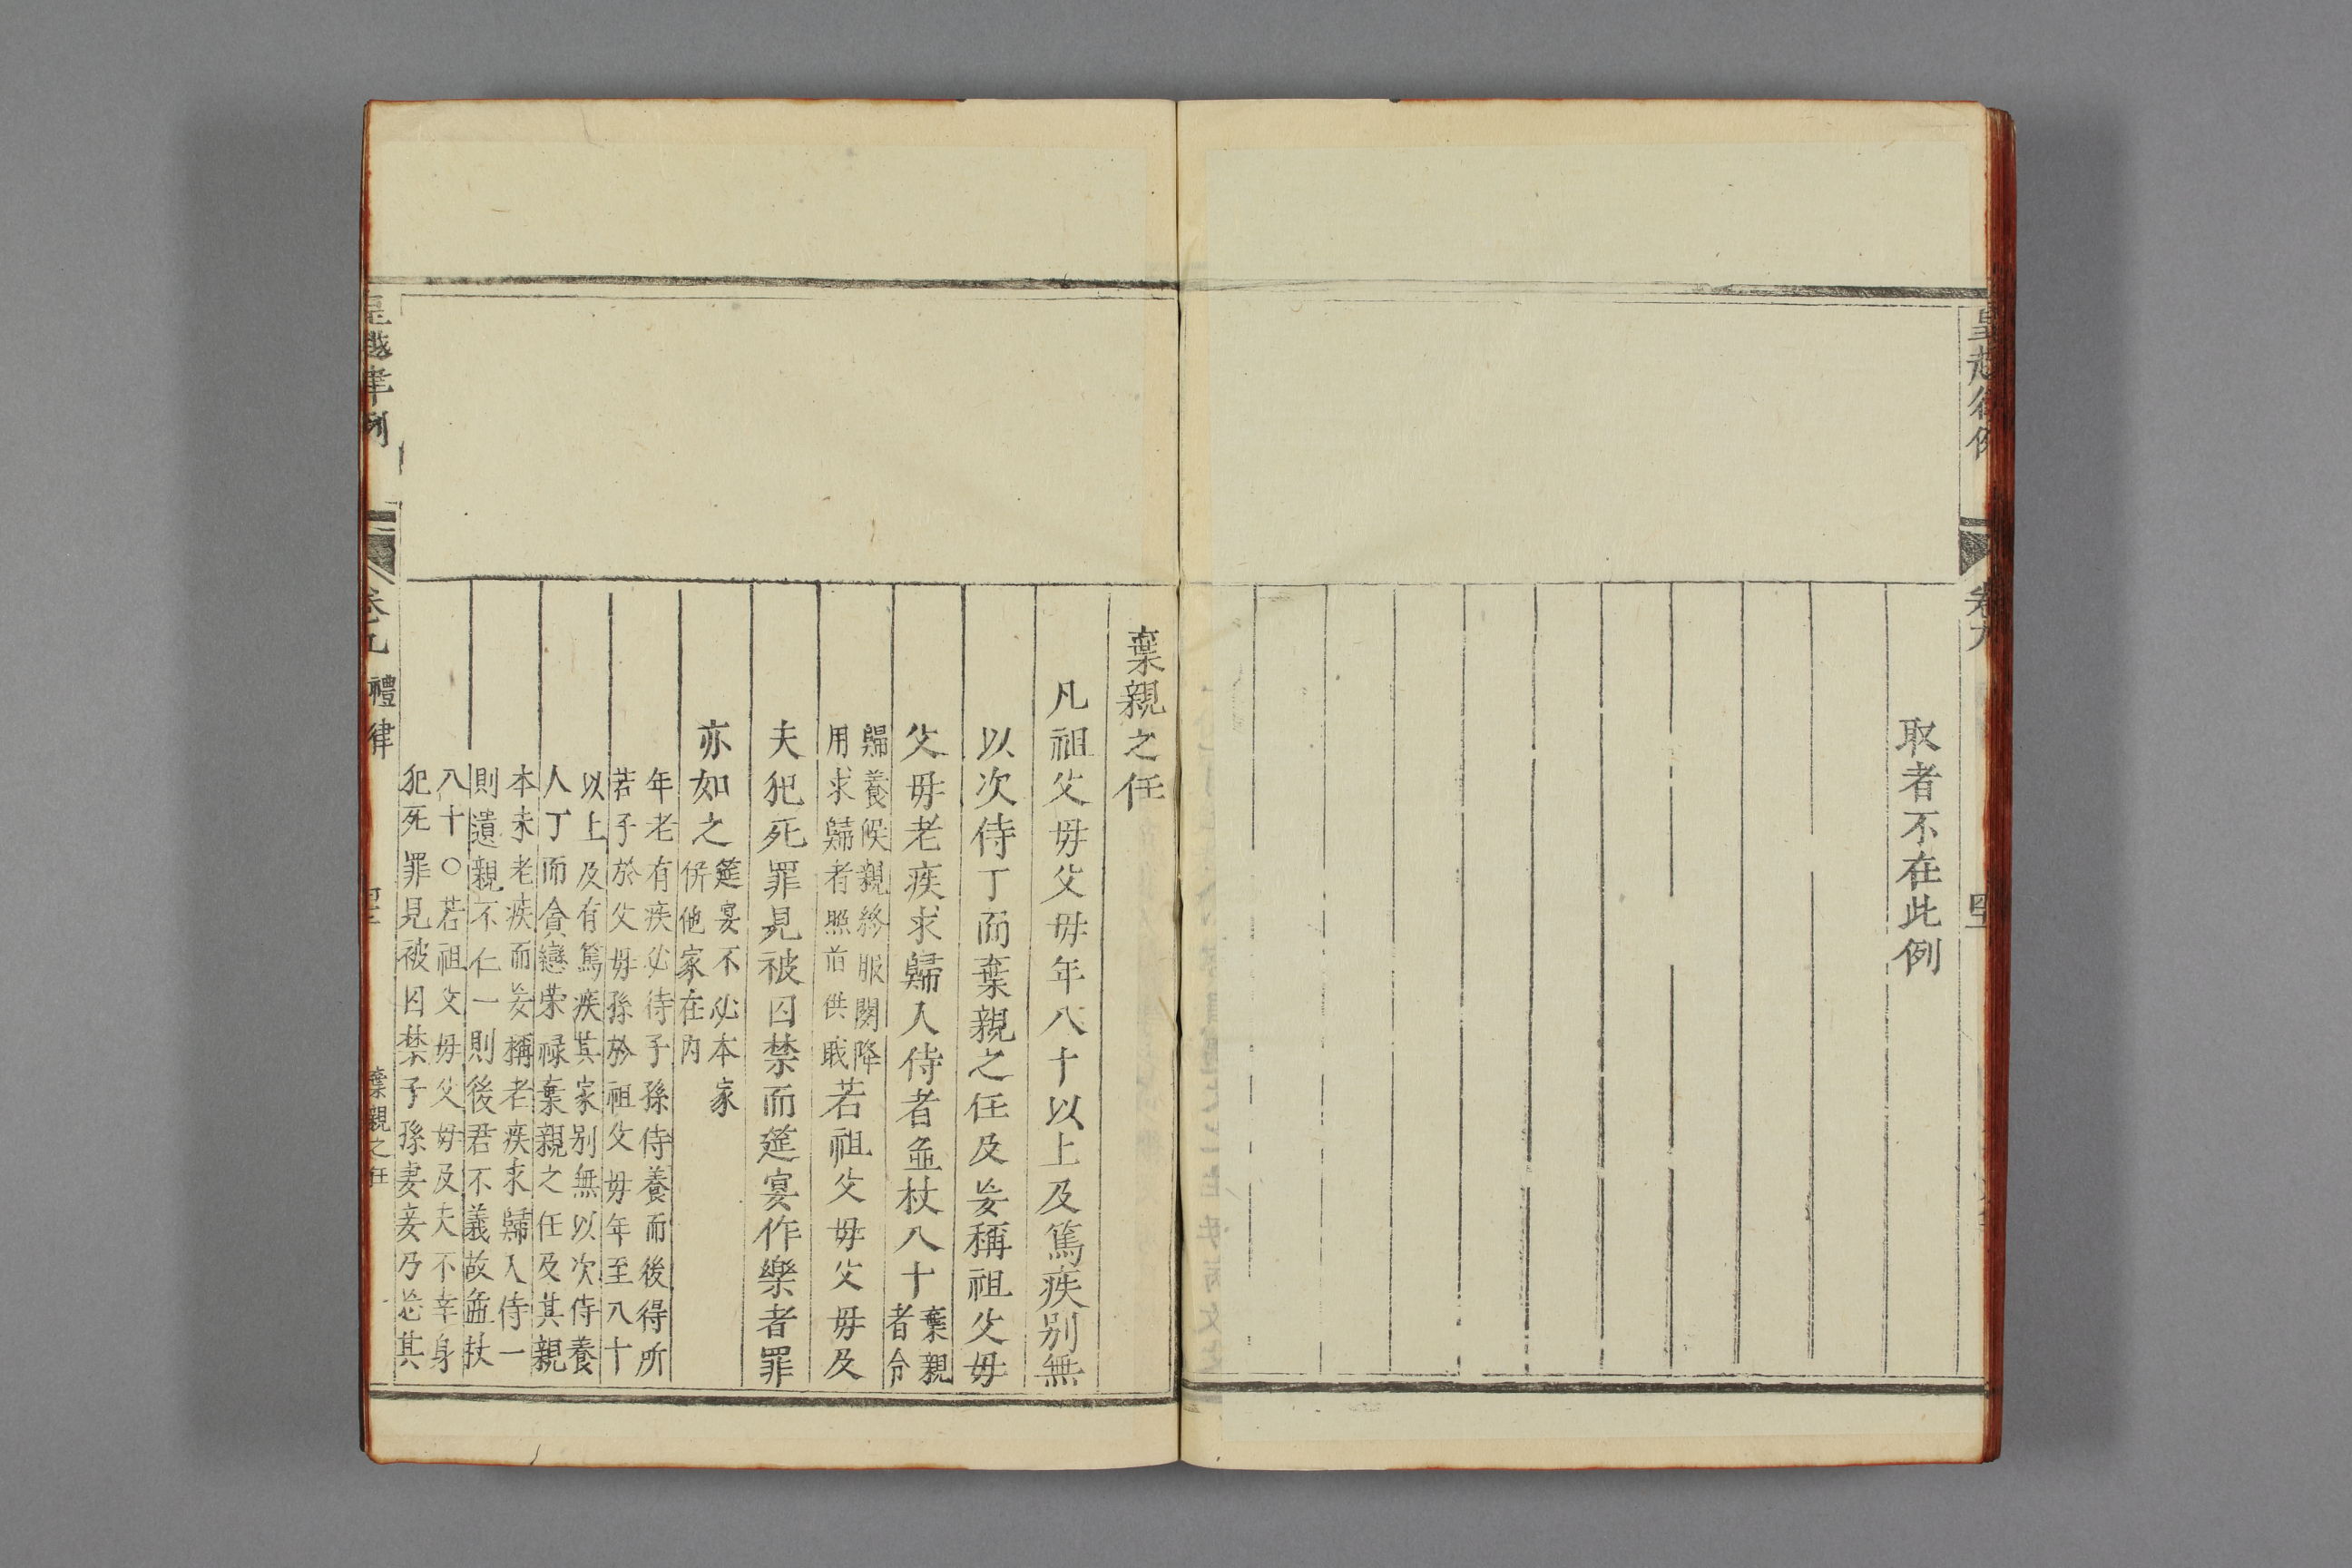 皇越律例
卷九
取者不在此例
棄親之任
凡祖父母父母年八十以上及篤疾別無
以次侍丁而棄親之任及妄稱祖父母
父母老疾求歸入侍者並杖八十
棄親
者令
歸養候親終服闋降
用求歸者照首供職
若祖父母父母及
夫犯死罪見被囚禁而筵宴作樂者罪
亦如之
筵宴不必本家
併他家在內
年老有疾必待子孫侍養而後得所
若子於父母孫於祖父母年至八十
以上及有篤疾其家別無以次侍養
人丁而貪戀荣祿棄親之任及其親
本未老疾而妄稱老疾求歸入侍一
則遺親不仁一則後君不義故並杖
八十○若祖父母父母及夫不幸身
犯死罪見被囚禁子孫妻妾乃忘其
皇越律例
卷九
禮律
棄親之任